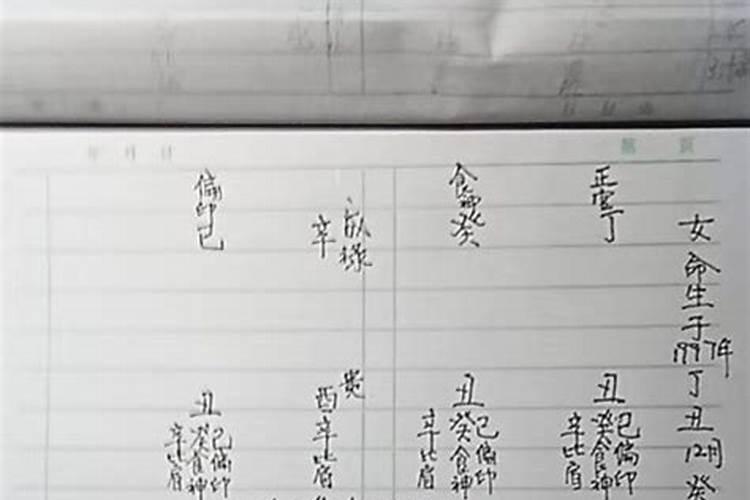 年 月 日
第 页
女命生于1997年丁丑12月癸
正官丁
丑
己偏印
癸食神
辛比肩
食神癸
丑
己偏印
癸食神
辛比肩
禄
辛
贵
酉
辛比肩
偏印己
丑
己偏印
癸食神
辛比肩